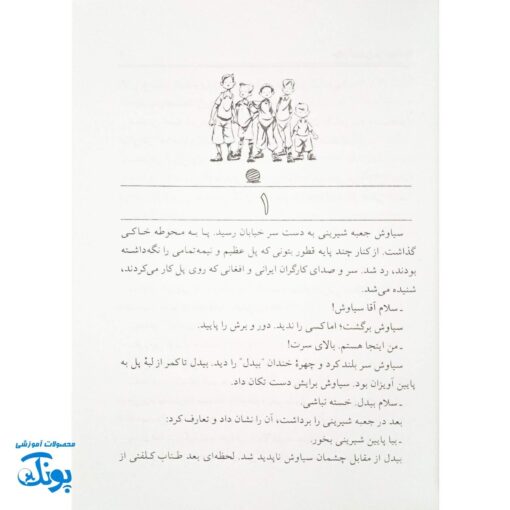 ۱
سیاوش جعبه شیرینی به دست سر خیابان رسید. پا به محوطه خاکی
گذاشت. از کنار چند پایه قطور بتونی که پل عظیم و نیمه‌تمامی را نگه‌داشته
بودند، رد شد. سر و صدای کارگران ایرانی و افغانی که روی پل کار می‌کردند،
شنیده می‌شد.
ـ سلام آقا سیاوش!
سیاوش برگشت؛ اما کسی را ندید. دور و برش را پایید.
ـ من اینجا هستم. بالای سرت!
سیاوش سر بلند کرد و چهرهٔ خندان "بیدل" را دید. بیدل تا کمر از لبهٔ پل به
پایین آویزان بود. سیاوش برایش دست تکان داد.
ـ سلام بیدل. خسته نباشی.
بعد در جعبه شیرینی را برداشت، آن را نشان داد و تعارف کرد:
ـ بیا پایین شیرینی بخور.
بیدل از مقابل چشمان سیاوش ناپدید شد. لحظه‌ای بعد طناب کلفتی از
محصولات آموزشی
پونک